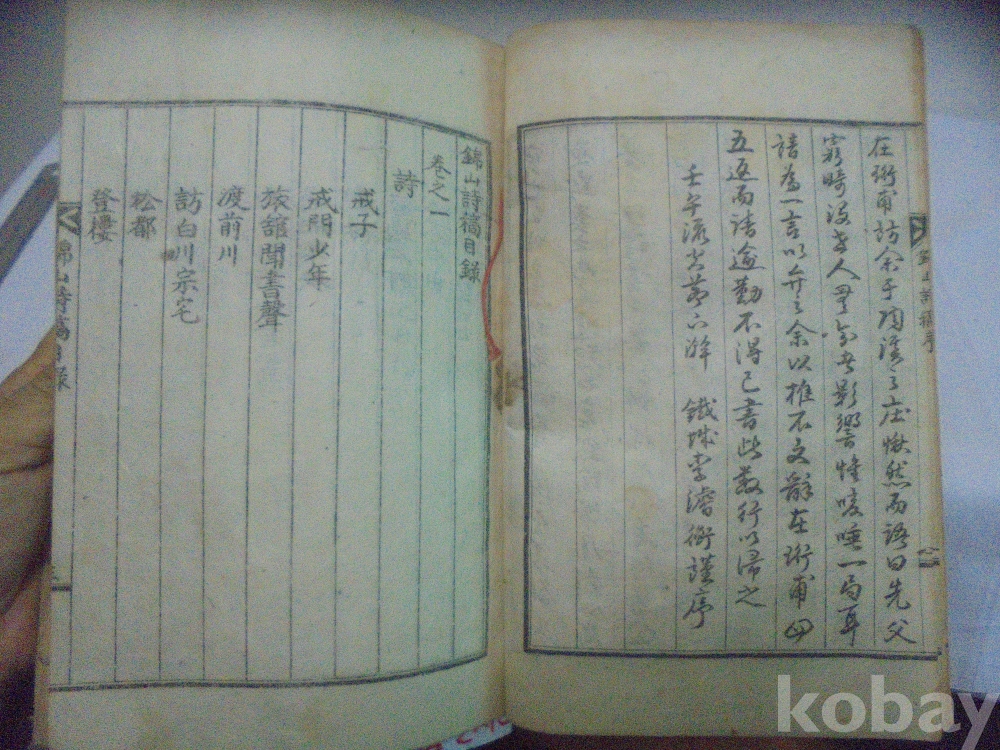 在珩甫訪余于陶溪之庄愀然而語曰先父
窮畸沒世人無
影響惟咳唾一局耳
請爲一言以弁之余以推不文辭在珩甫四
五返而請逾勤不得已書此數行以歸之
壬午流火節下澣 鐵城李濬衡謹序
錦山詩稿序
錦山詩稿目錄
卷之一
詩
戒子
戒閒少年
旅舘聞書聲
渡前川
訪白川宗宅
松都
登樓
錦山詩稿目錄
kobay